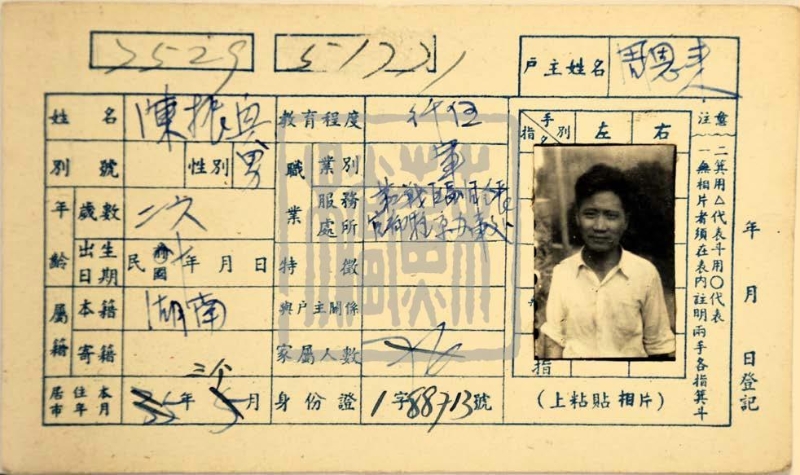 3529 5-1771
戶主姓名
姓名 陳振
教育程度 行伍
別號 性別 男
職業 業別 軍
服務處所
年齡 歲數 二六
出生日期 民國 年 月 日
特徵
屬籍 本籍 湖南
與戶主關係
寄籍
家屬人數
居住本市年月 35年5月 三个
身份證 1字88713號
手別 指別 左 右
指
(上粘貼相片)
注意
一無相片者須在表內註明兩手各指箕斗
二箕用△代表斗用○代表
年 月 日登記